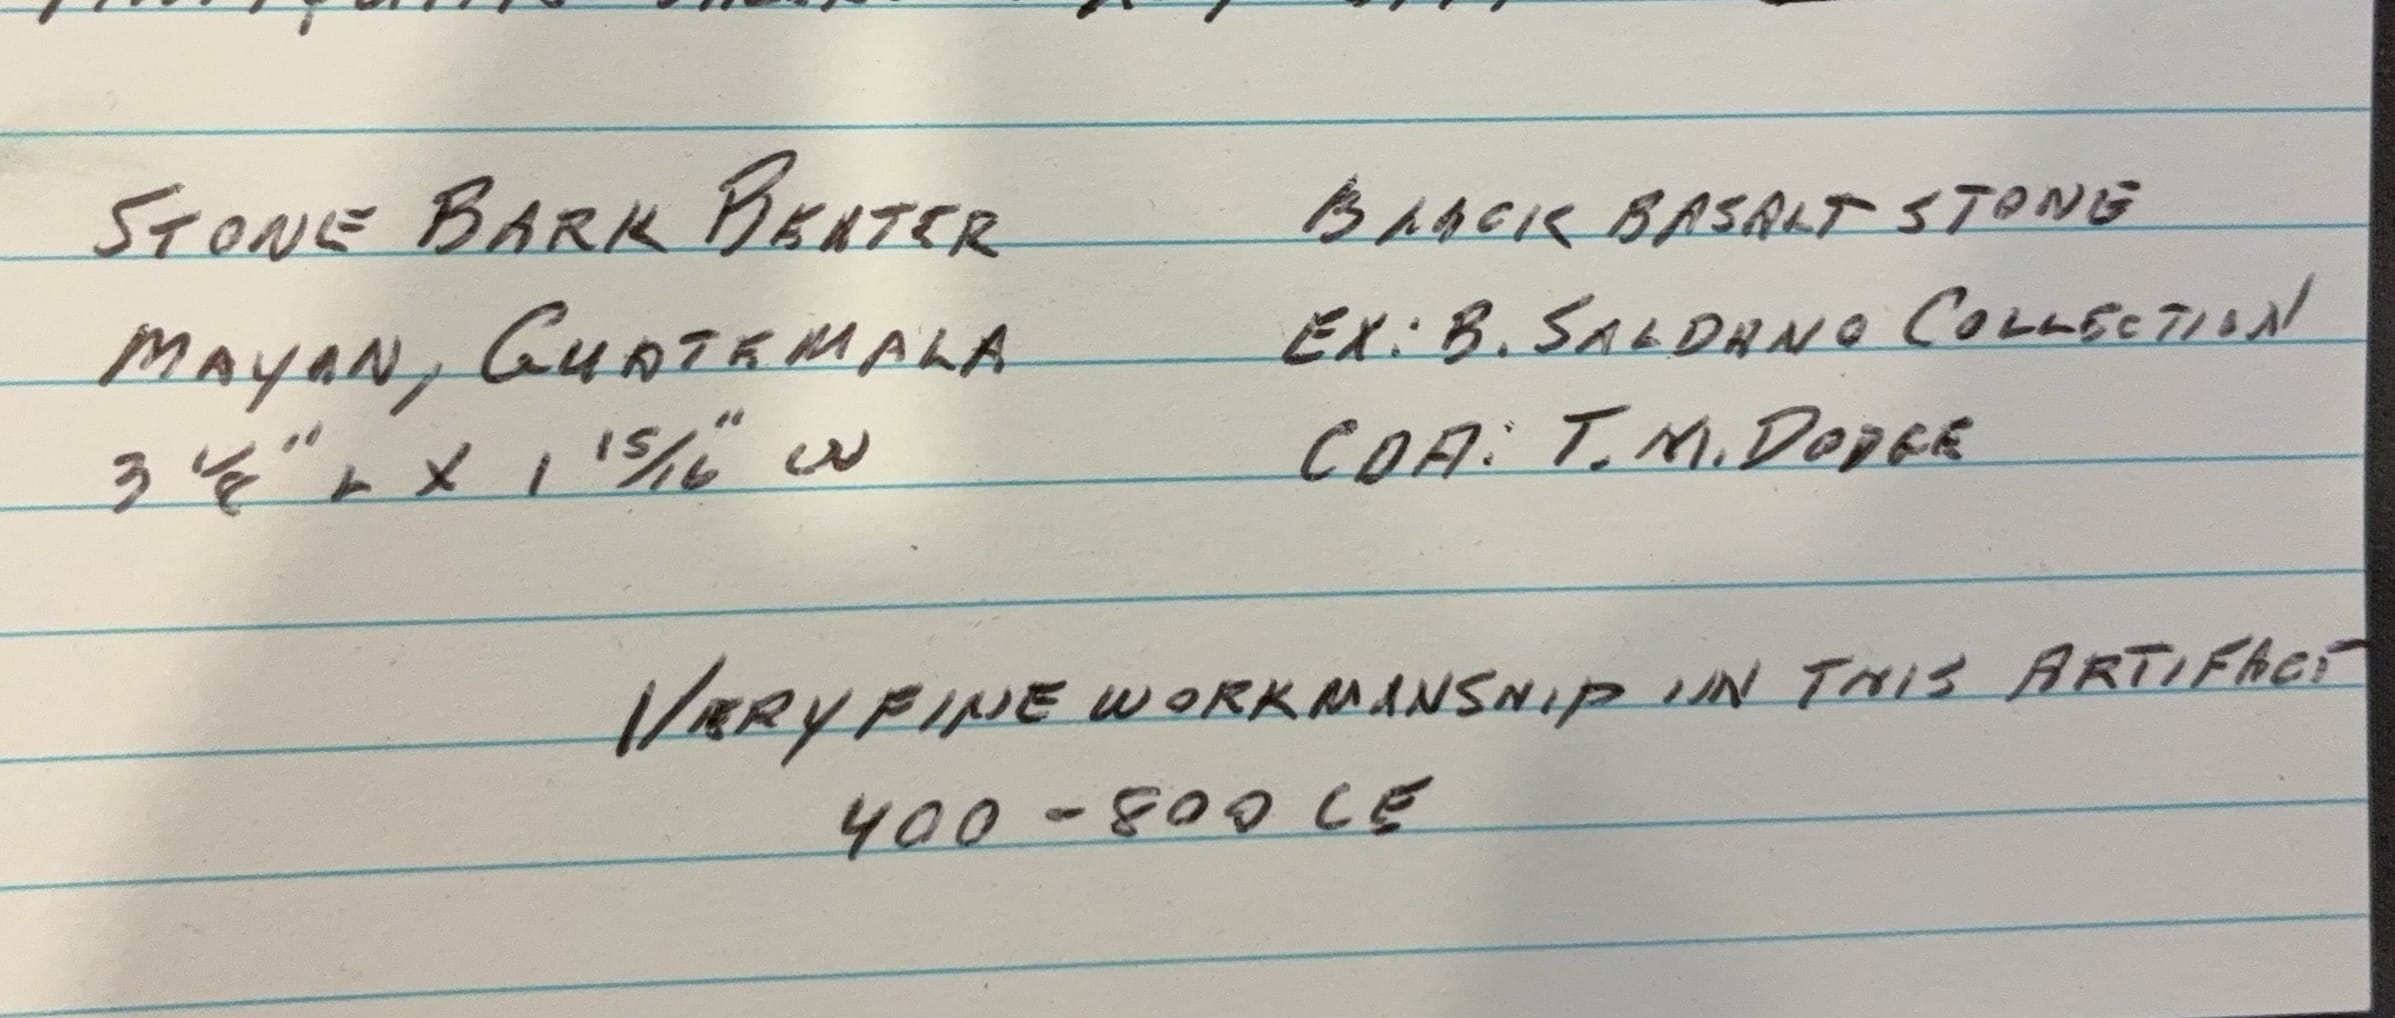 STONE BARK BEATER
MAYAN, GUATEMALA
3 1/8" L X 1 15/16" W
BLACK BASALT STONE
EX: B. SALDANO COLLECTION
COA: T. M. DODGE
VERY FINE WORKMANSHIP IN THIS ARTIFACT
400 - 800 CE